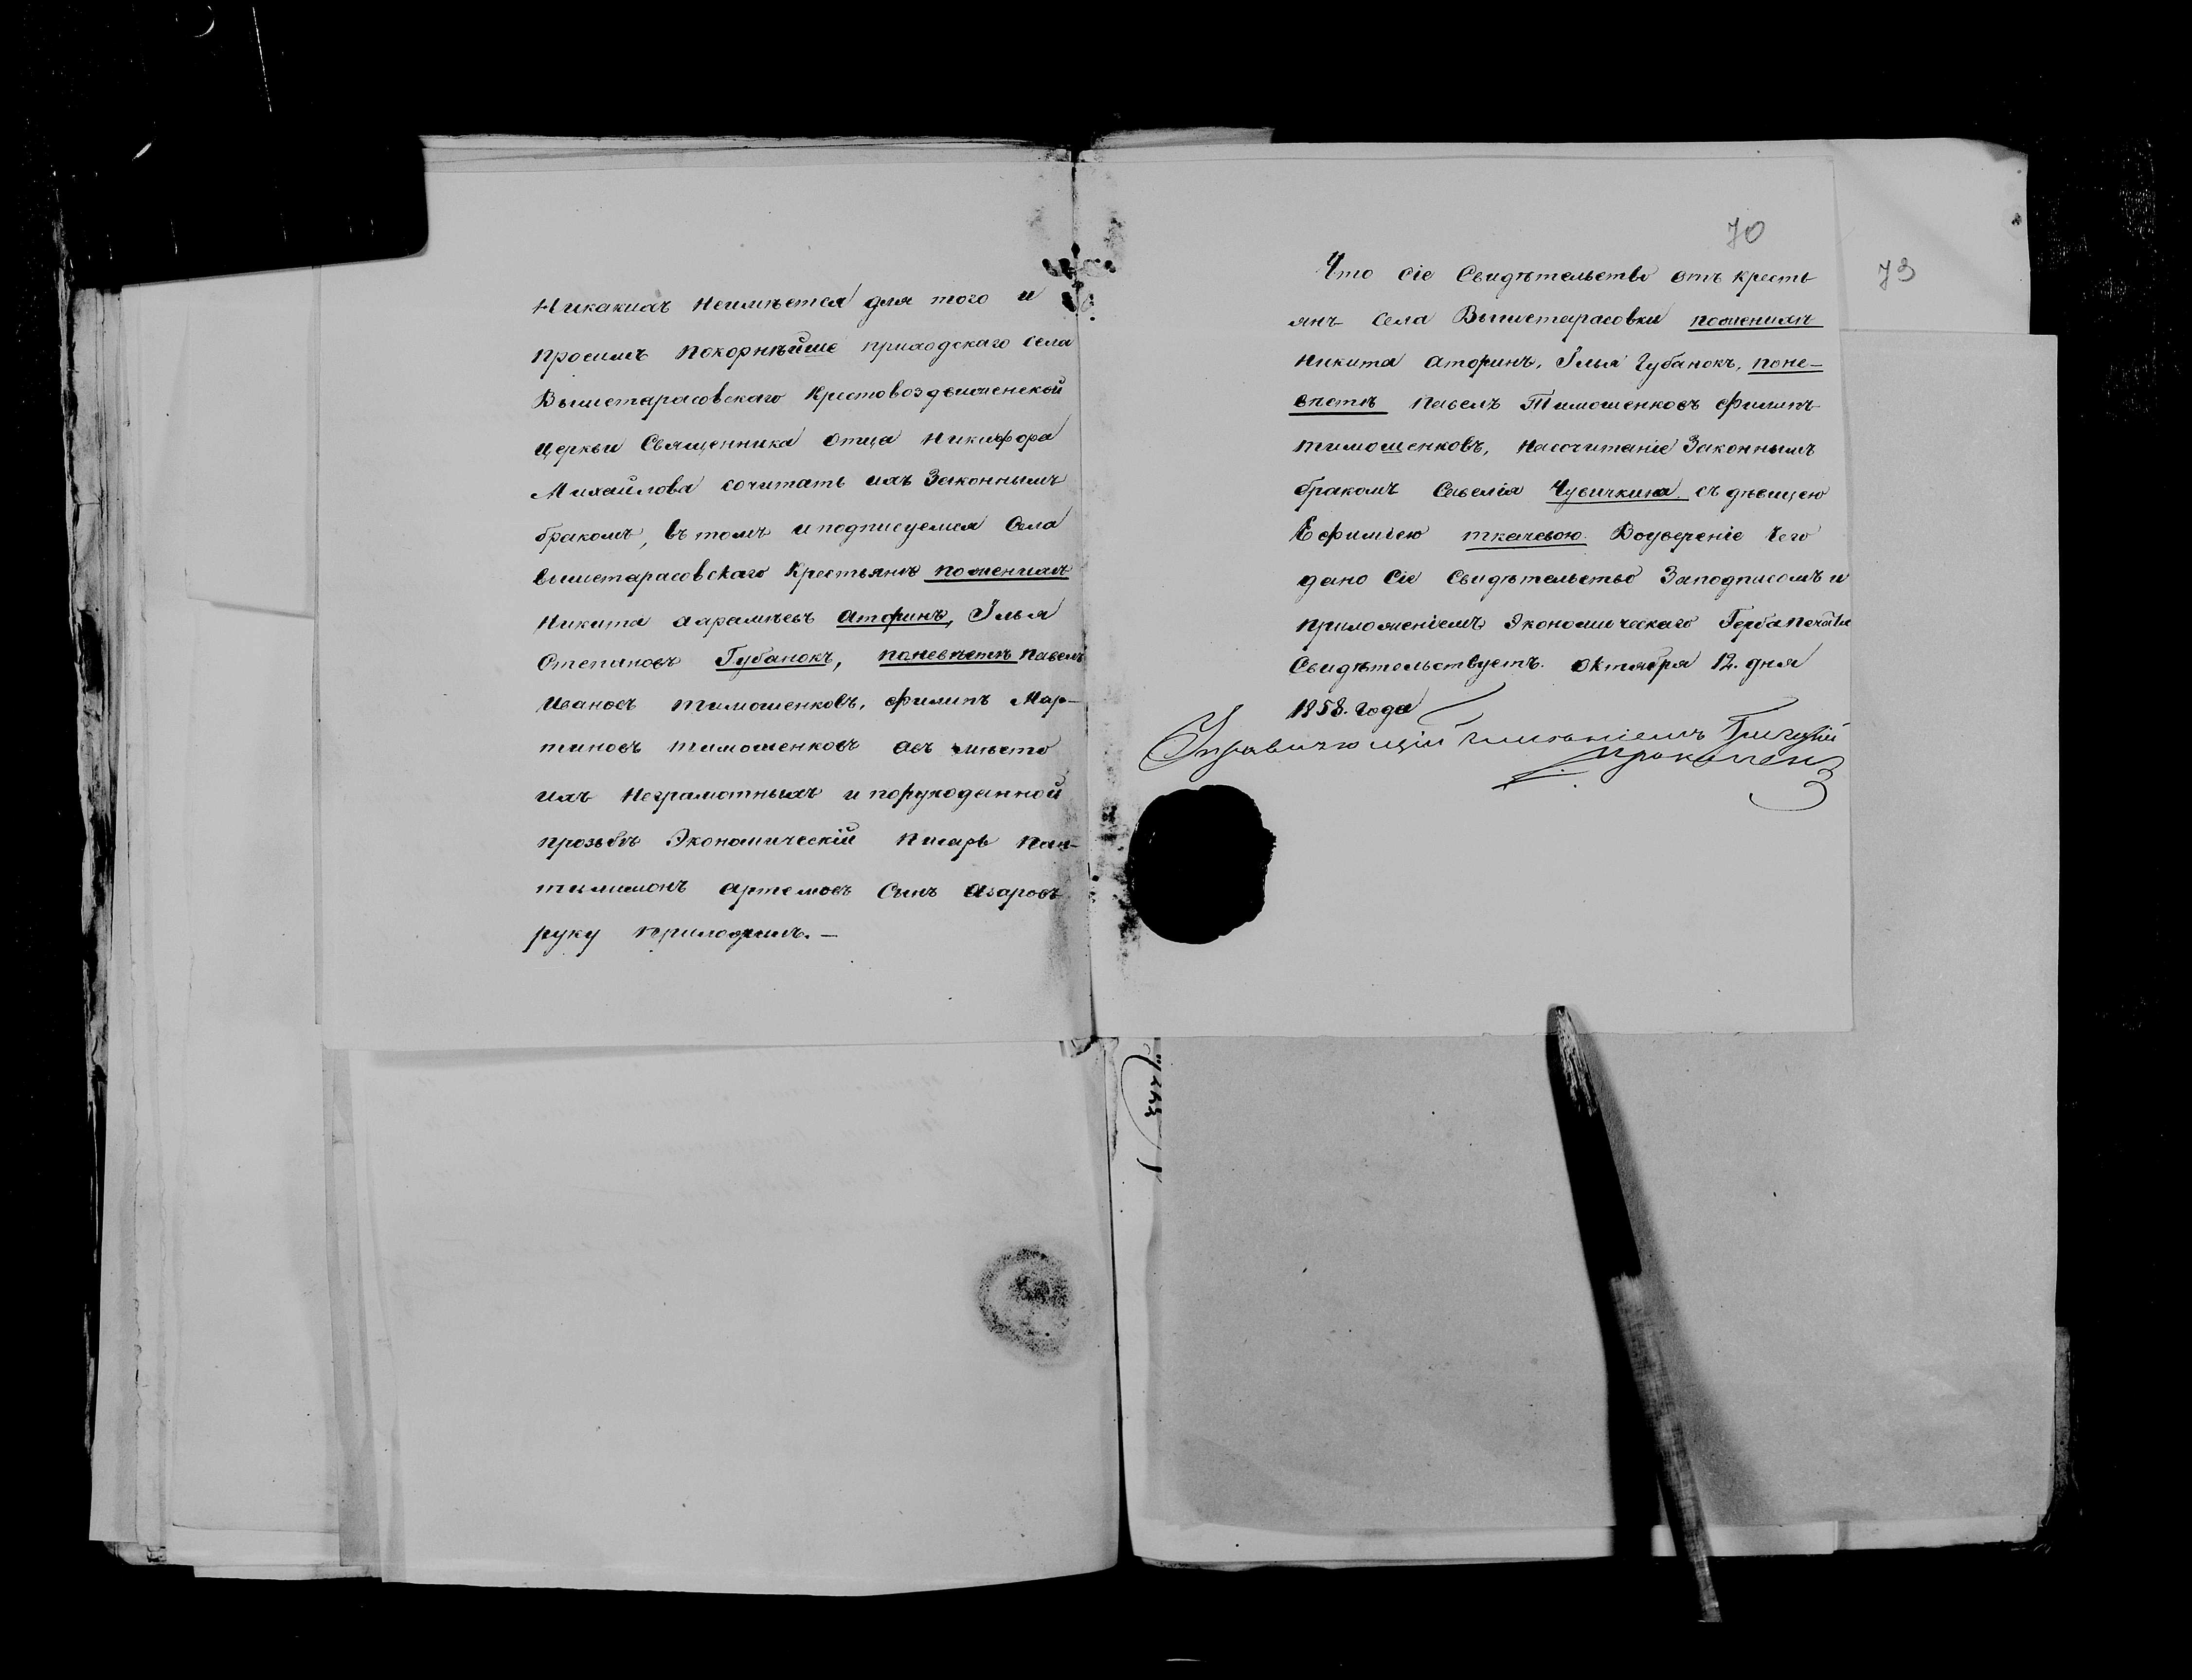 Никакихъ Неимѣется для того и
просимъ покорнѣйше приходскаго села
Вышетарасовскаго Крестовоздвиженской
церкви Священника отца Никифора
Михайлова сочитать ихъ Законнымъ
бракомъ, въ томъ и подписуемся Села
вышетарасовскаго Крестьянъ по женихѣ
Никита Аторинъ, Ілья
Степановъ Губанокъ, поневѣстѣ павелъ
Ивановъ тимошенковъ, филипъ Мар-
тиновъ тимошенковъ авъ мѣсто
ихъ Неграмотныхъ и порукоданной
прозьбѣ Экономическій писарь пан-
тилимонъ артемовъ Сынъ азаровъ
руку приложилъ.—
70
73
Что сіе Свидѣтельство отъ кресть
янъ Села Вышетарасовки поженихѣ
Никита аторинъ, Ілья Губанокъ, поне-
вѣстѣ павелъ Тимошенковъ филипъ
тимошенковъ, Насочитаніе Законнымъ
бракомъ Савелія Чувичкина съ дѣвицею
Ефиміею ткачевою. Воуверение чего
дано Сіе Свидѣтельство Заподписомъ и
приложеніемъ Экономическаго Герба печати
Свидѣтельствуетъ. октября 12. дня
1858. года
Управляющій имѣніемъ